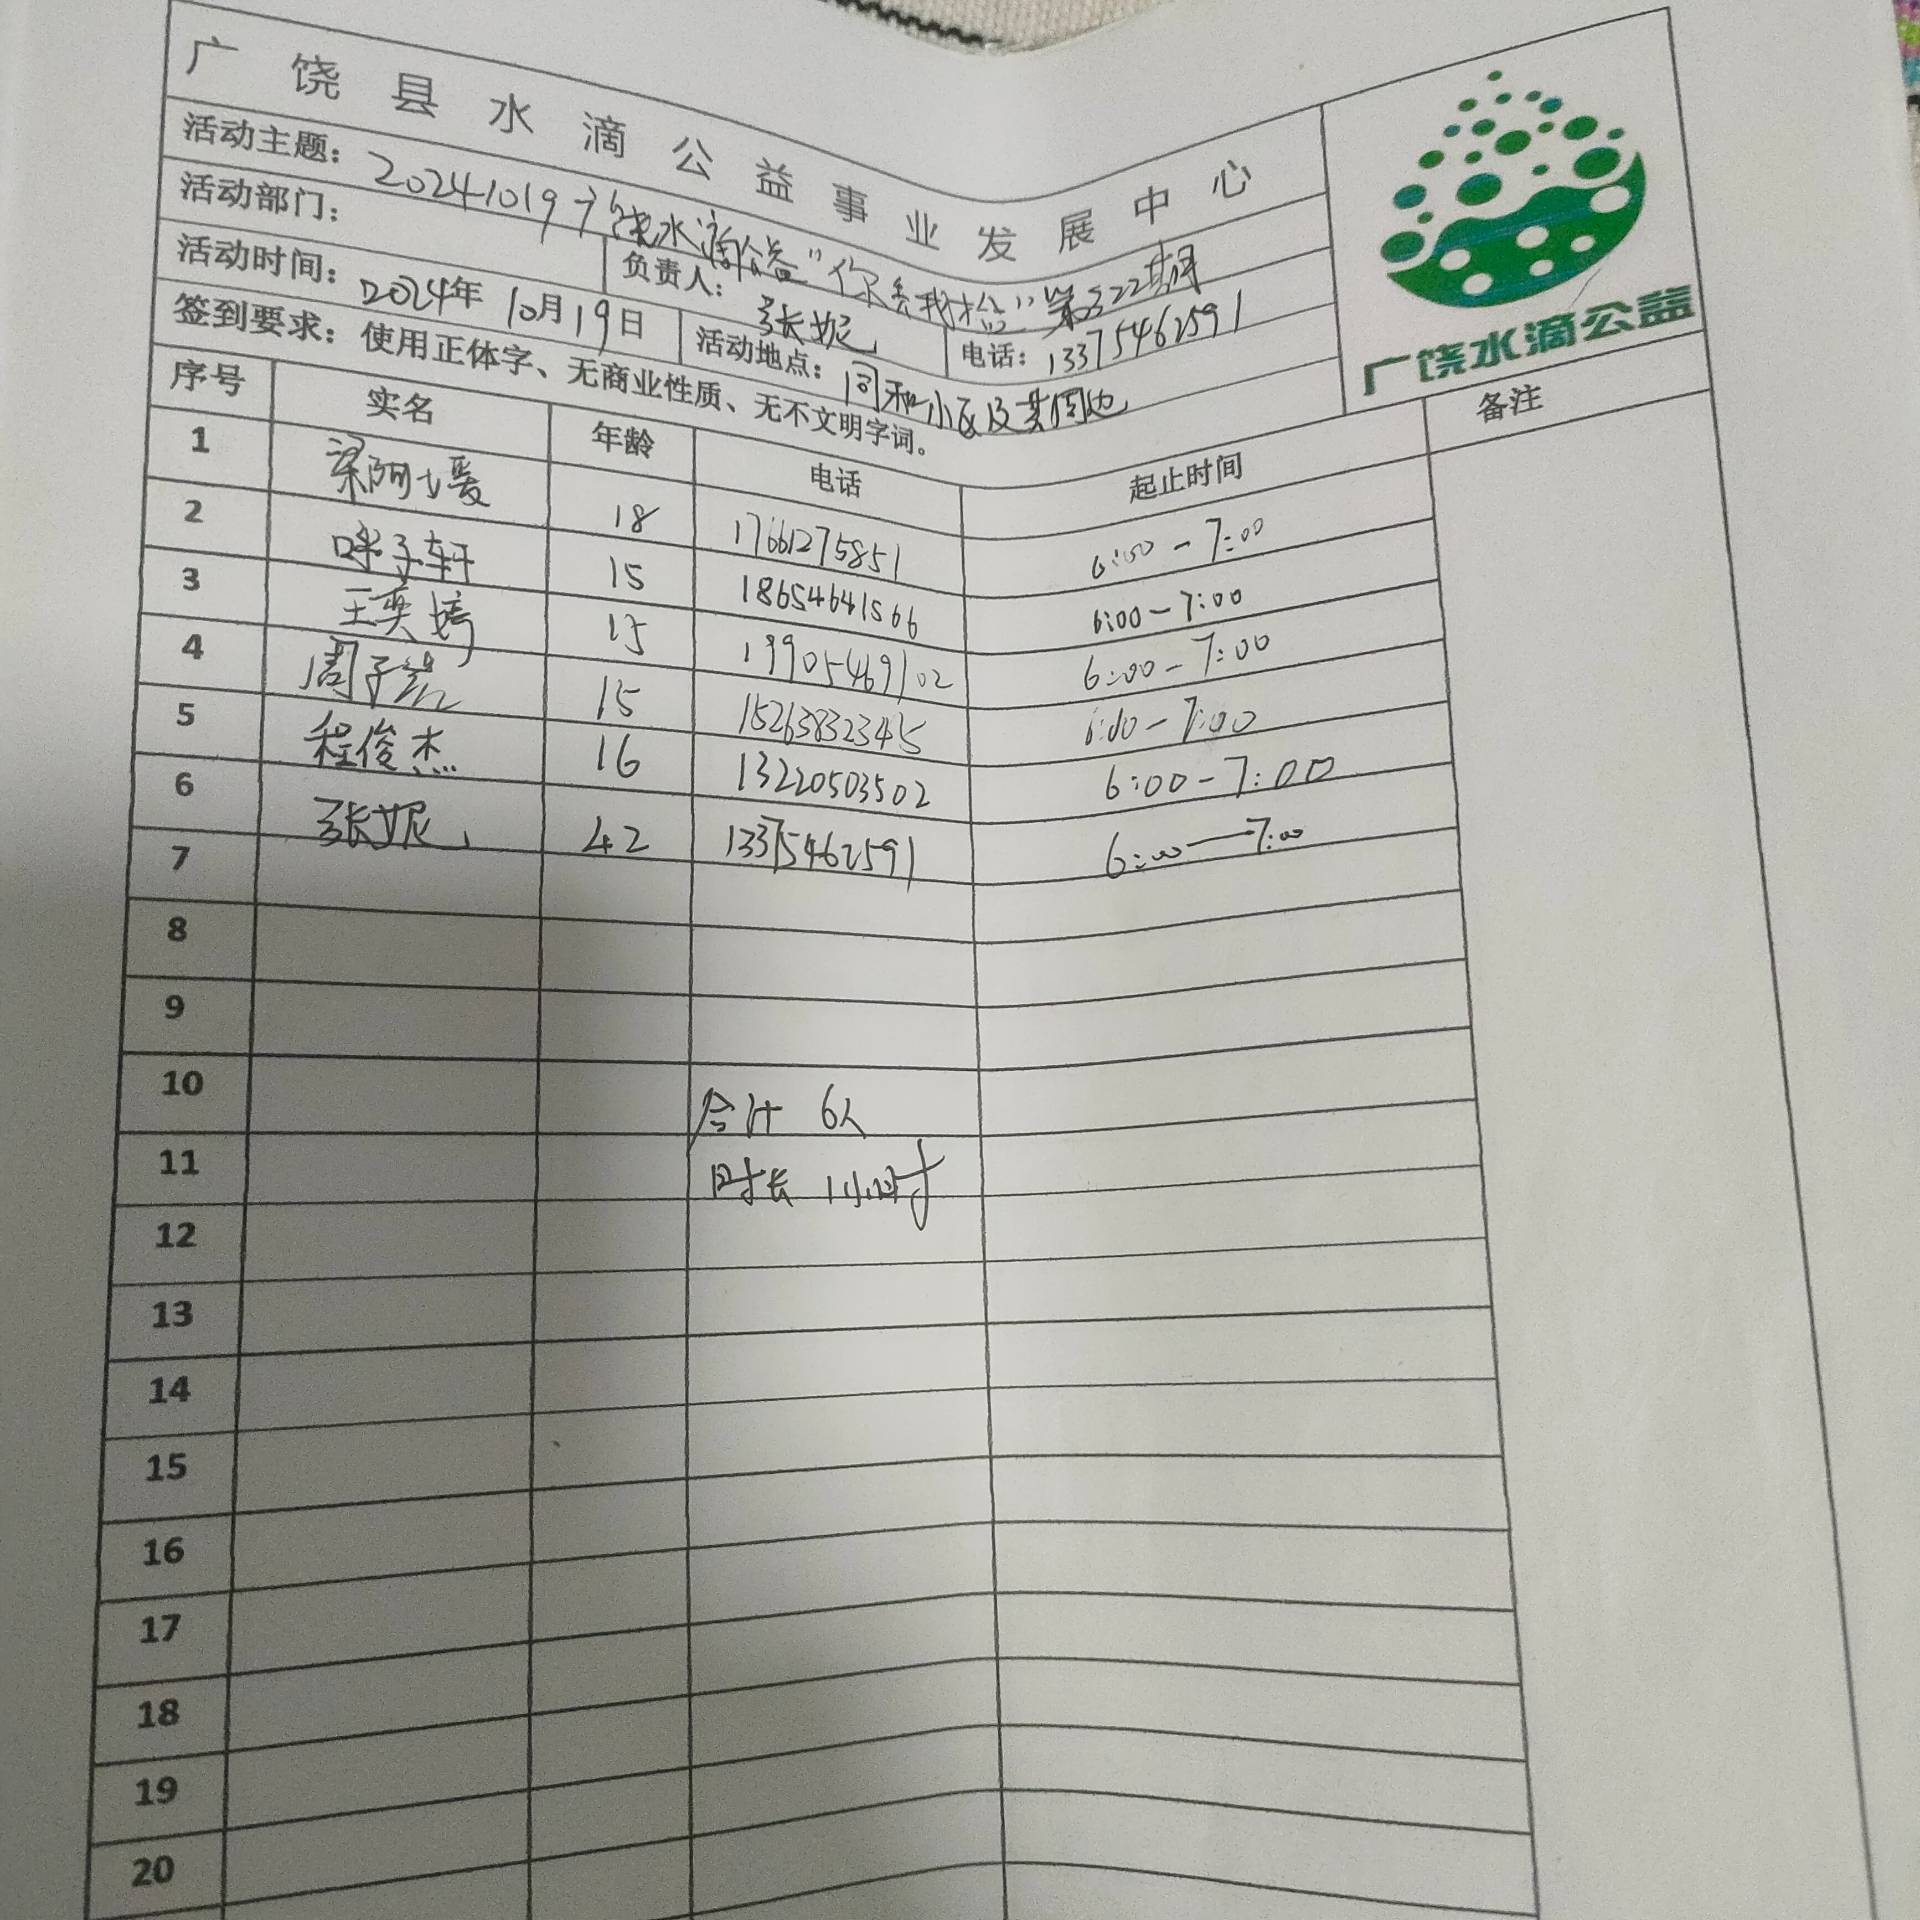 广饶县水滴公益事业发展中心
广饶水滴公益
活动主题：20241019广饶水滴公益"你丢我捡"第322期
活动部门： 负责人：张妮 电话：13375462591
活动时间：2024年10月19日 活动地点：同和小区及其周边
签到要求：使用正体字、无商业性质、无不文明字词。
序号 实名 年龄 电话 起止时间 备注
1 梁阿媛 18 17661275851 6:00-7:00
2 子轩 15 18654641566 6:00-7:00
3 王奕婷 15 19905469102 6:00-7:00
4 周子 15 15263832345 6:00-7:00
5 程俊杰 16 13220503502 6:00-7:00
6 张妮 42 13375462591 6:00-7:00
7
8
9
10 合计 6人
11 时长 1小时
12
13
14
15
16
17
18
19
20